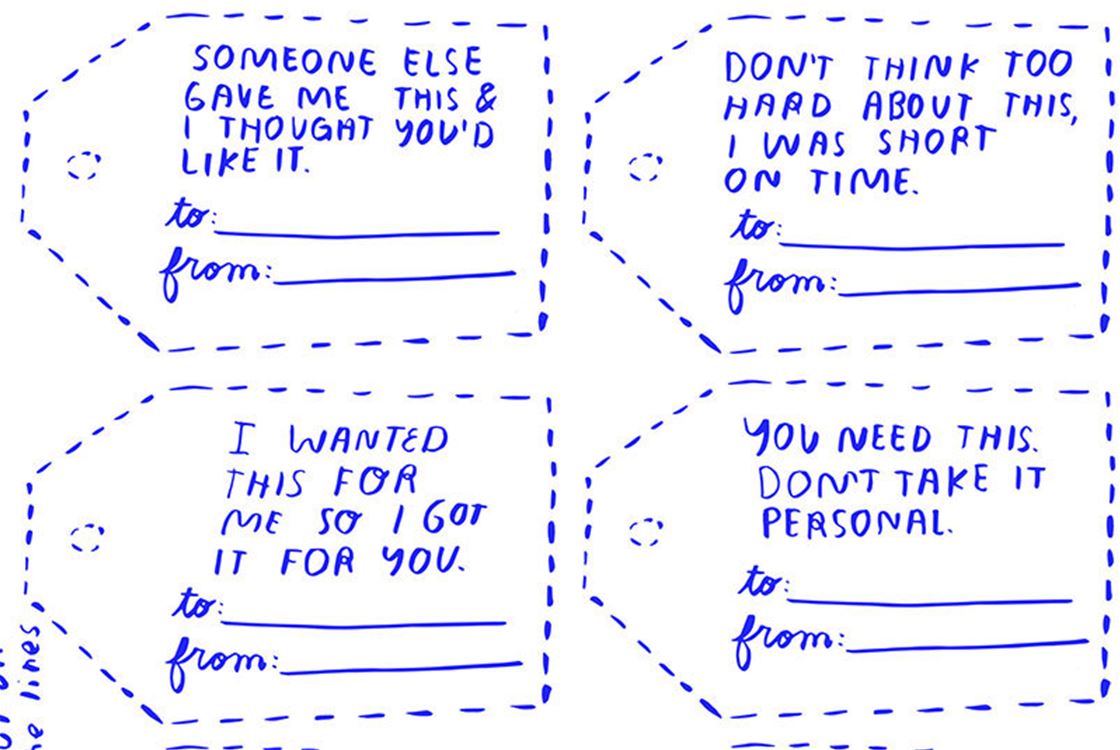 SOMEONE ELSE
GAVE ME THIS &
I THOUGHT YOU'D
LIKE IT.
to:
from:
DON'T THINK TOO
HARD ABOUT THIS,
I WAS SHORT
ON TIME.
to:
from:
I WANTED
THIS FOR
ME SO I GOT
IT FOR YOU.
to:
from:
YOU NEED THIS.
DON'T TAKE IT
PERSONAL.
to:
from:
lines